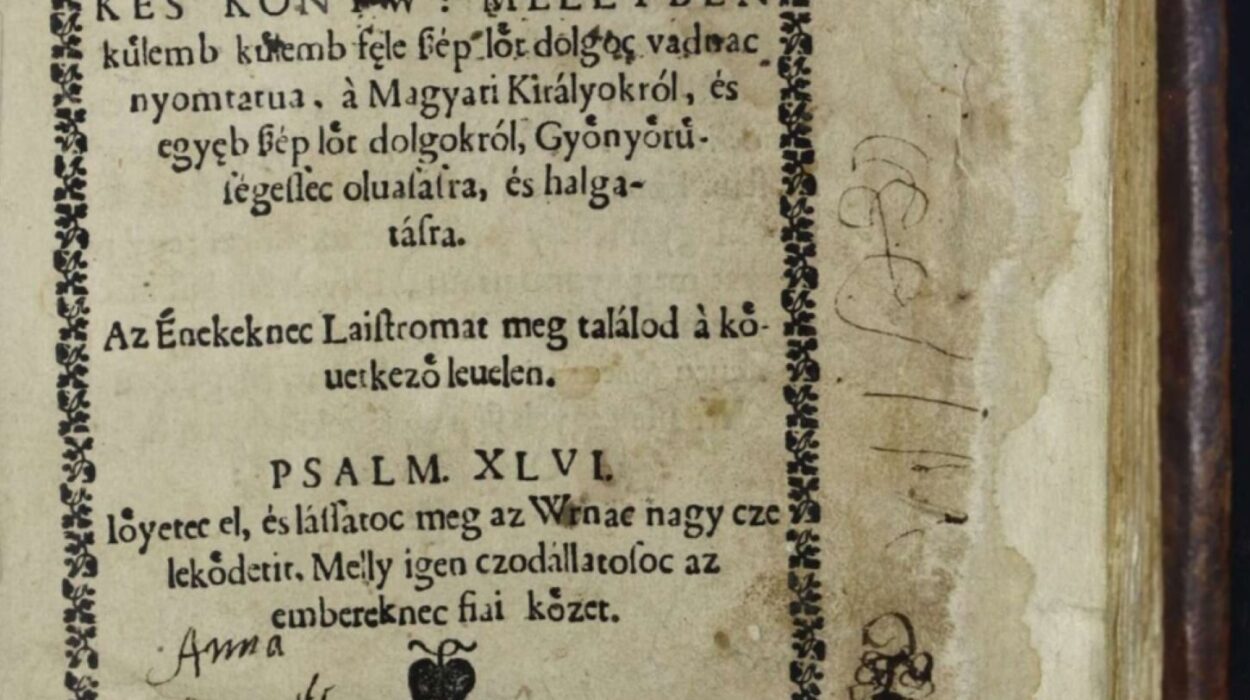 KES KOͤNYW: MELLYBEN
kuͤlemb kuͤlemb fęle ßép loͤt dolgoc vadnac
nyomtatua, à Magyari Királyokról, és
egyęb ßép loͤt dolgokról, Gyoͤnyoͤruͤ-
ſégeſſec oluaſaſra, és halga-
táſra.
Az Énekeknec Laiſtromat meg találod à koͤ-
uetkezoͤ leuelen.
PSALM. XLVI.
Ioͤyetec el, és láſſatoc meg az Wrnac nagy cze
lekoͤdetit. Melly igen czodállatoſoc az
embereknec fiai koͤzet.
Anna